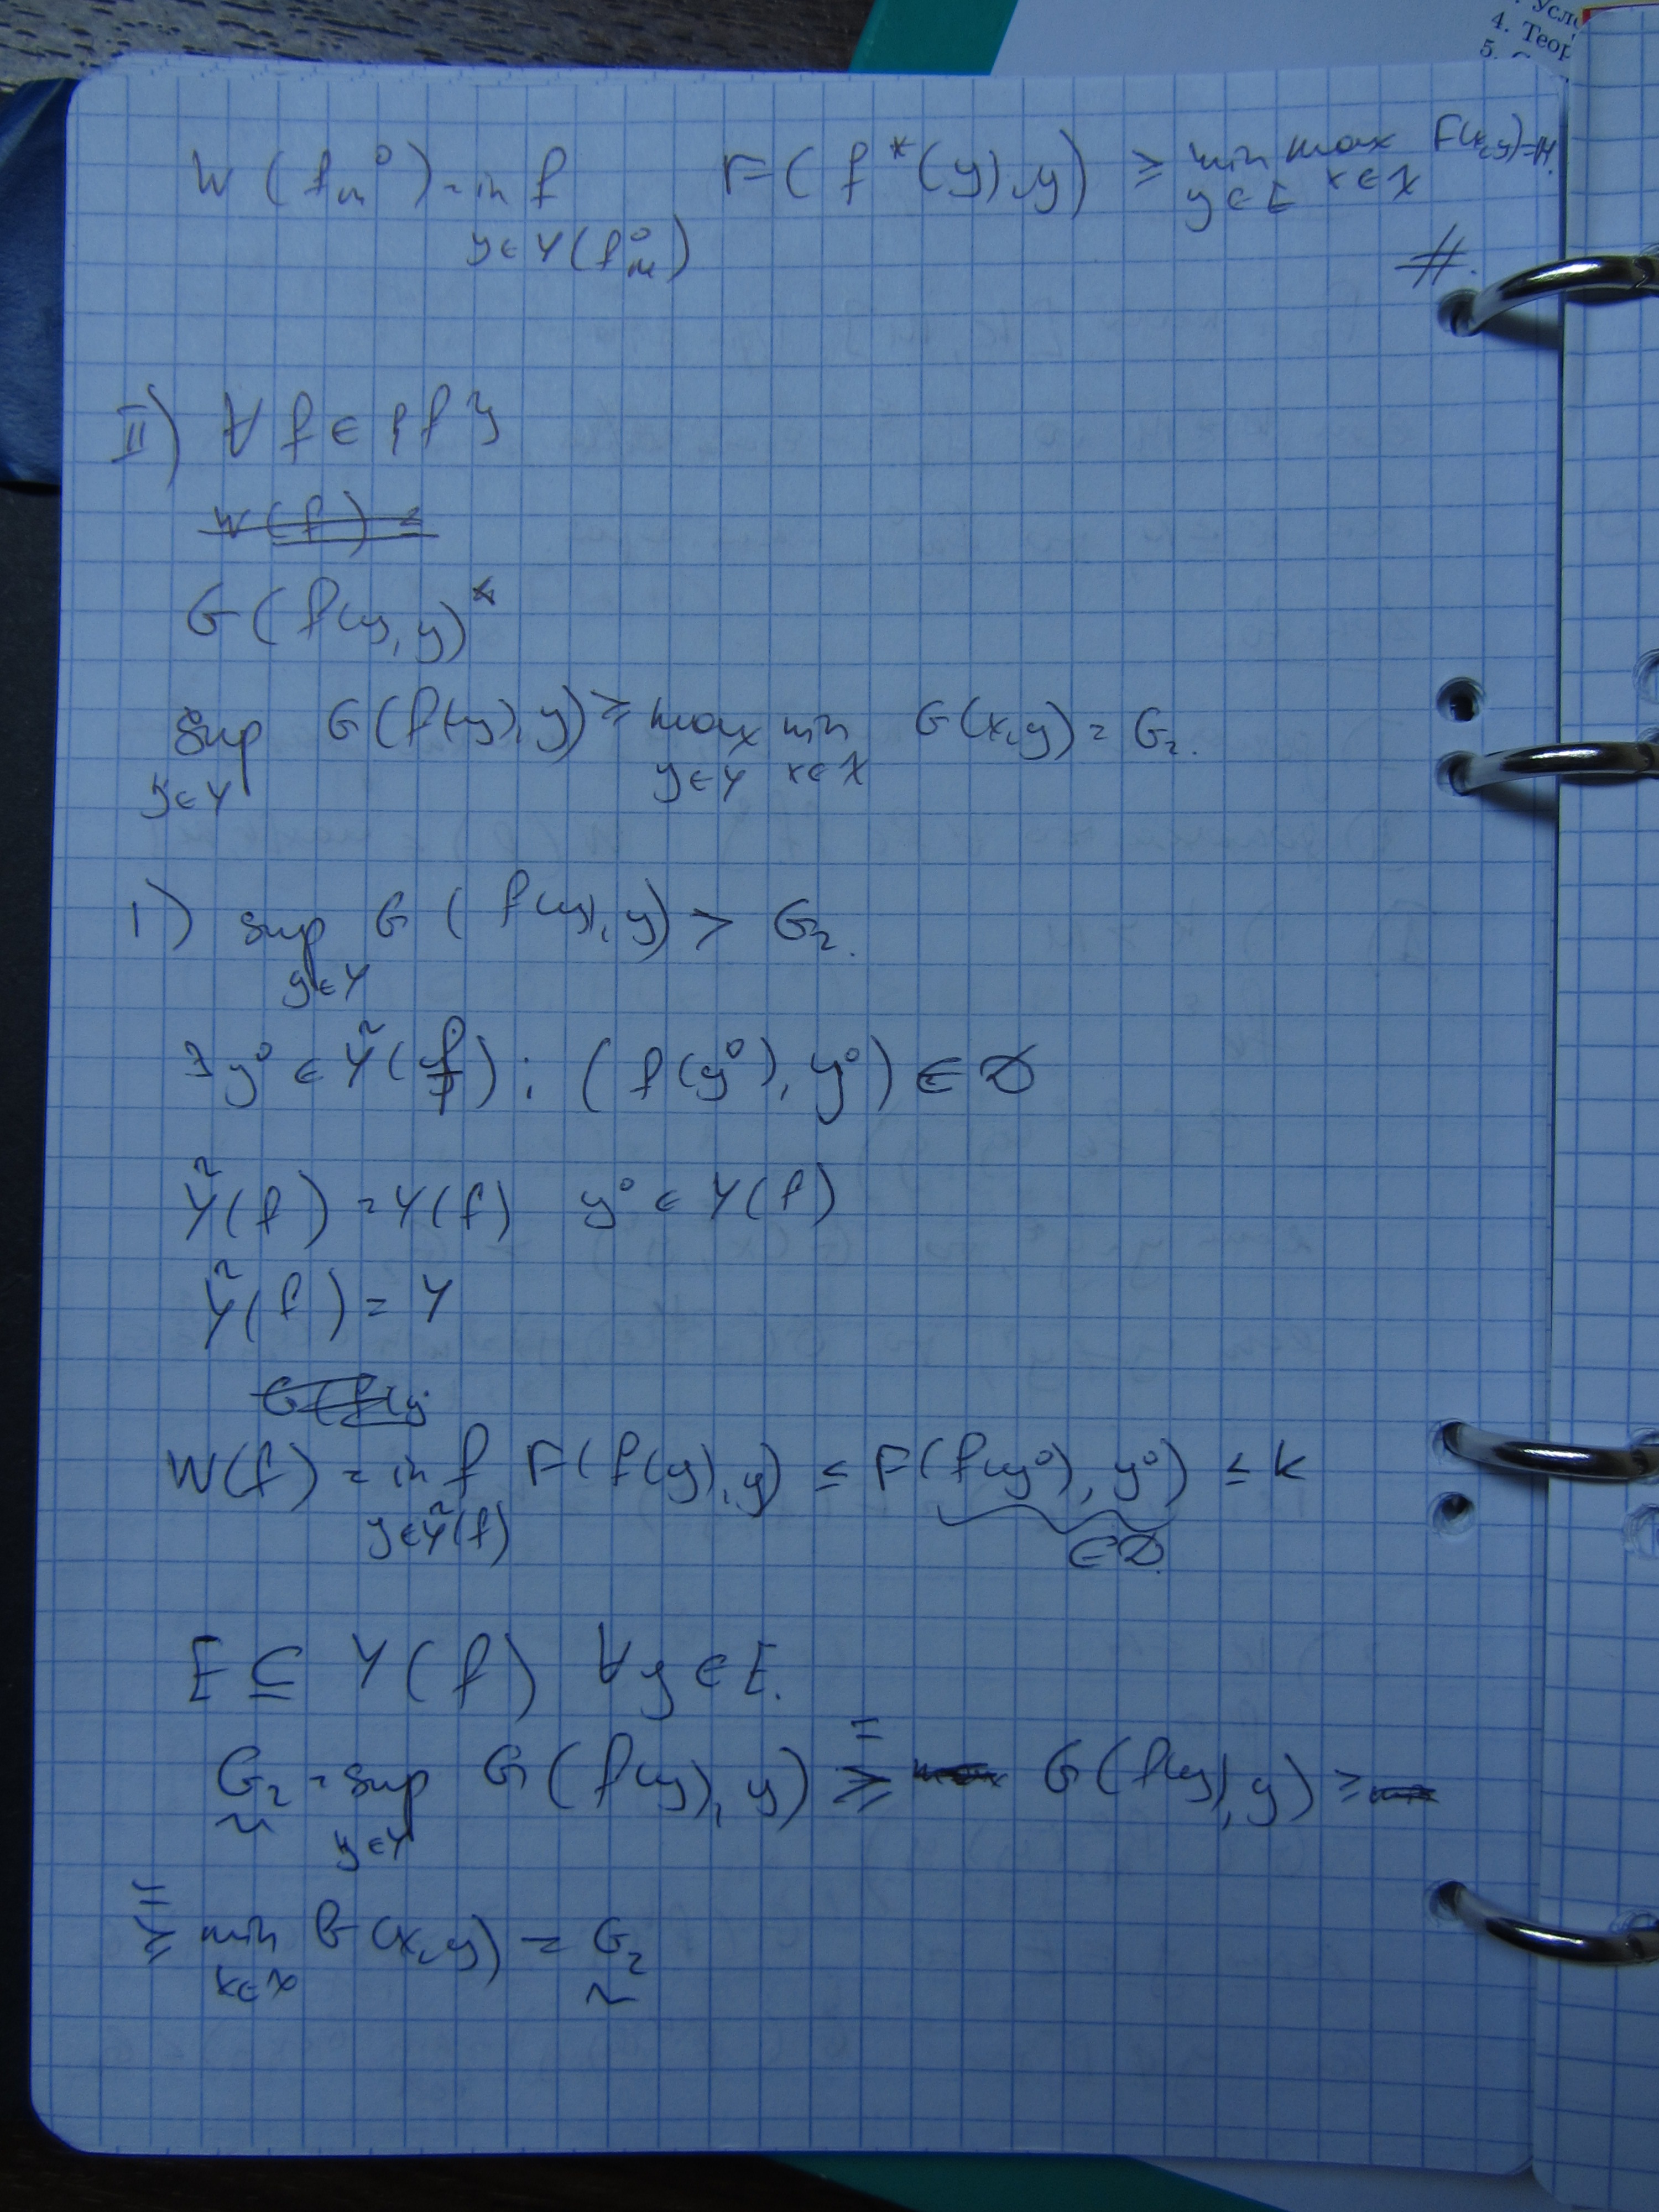 4. Теор
5.
W(f_м^0) = inf_{y∈Y(f_м^0)} F(f*(y),y) ≥ min_{y∈E} max_{x∈X} F(x,y)=M.
#.
II) ∀ f ∈ {f}
G(f(y), y)
sup_{y∈Y} G(f(y),y) ≥ max_{y∈Y} min_{x∈X} G(x,y) = G₂.
1) sup_{y∈Y} G(f(y),y) > G₂.
∃ y⁰ ∈ Ỹ(f) : (f(y⁰), y⁰) ∈ D
Ỹ(f) = Y(f) y⁰ ∈ Y(f)
Ỹ(f) = Y
W(f) = inf_{y∈Ỹ(f)} F(f(y),y) ≤ F(f(y⁰), y⁰) ≤ K
∈D
E ⊆ Y(f) ∀y∈E.
G₂ = sup_{y∈Y} G(f(y),y) ≥ G(f(y),y) ≥
≥ min_{x∈X} G(x,y) = G₂